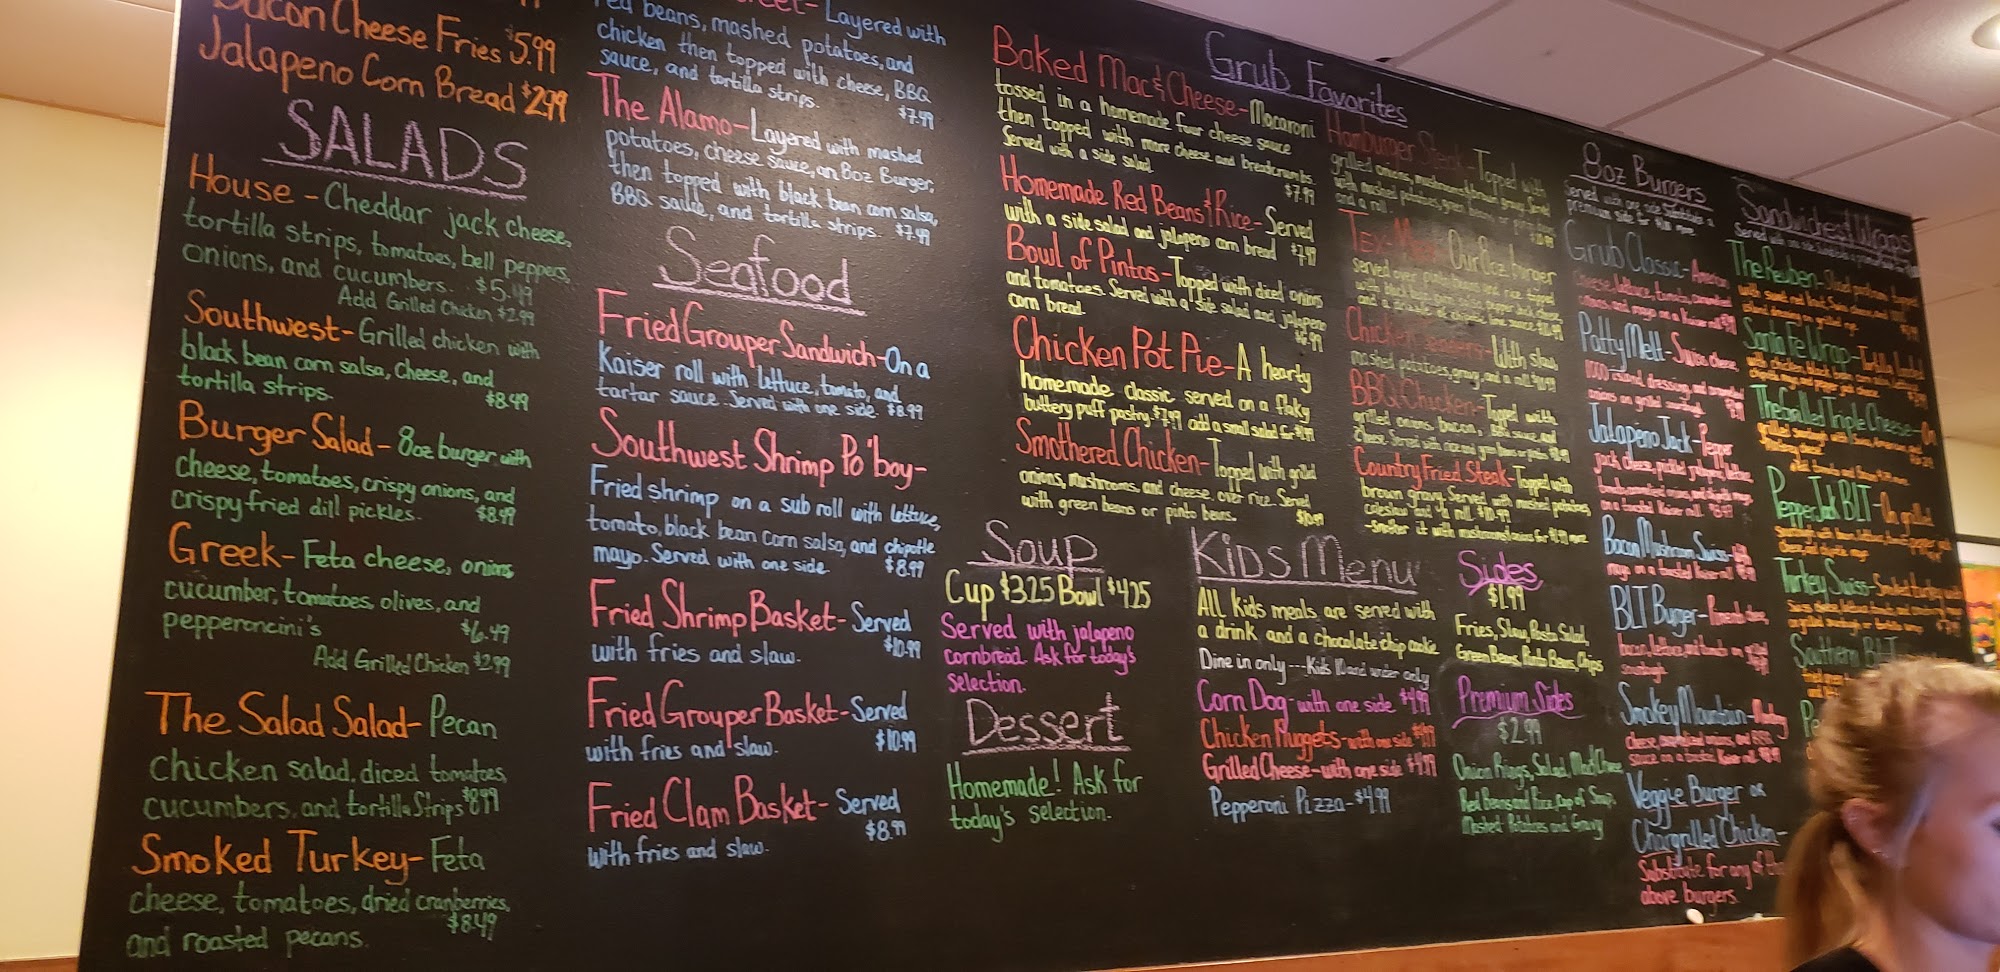 Bacon Cheese Fries $5.99
Jalapeno Corn Bread $2.99
SALADS
House - Cheddar jack cheese,
tortilla strips, tomatoes, bell peppers,
onions, and cucumbers. $5.49
Add Grilled Chicken $2.99
Southwest - Grilled chicken with
black bean corn salsa, cheese, and
tortilla strips. $8.49
Burger Salad - 8oz burger with
cheese, tomatoes, crispy onions, and
crispy fried dill pickles. $8.99
Greek - Feta cheese, onions,
cucumber, tomatoes, olives, and
pepperoncini's $6.49
Add Grilled Chicken $2.99
The Salad Salad - Pecan
chicken salad, diced tomatoes,
cucumbers, and tortilla strips $8.99
Smoked Turkey - Feta
cheese, tomatoes, dried cranberries,
and roasted pecans. $8.49
Layered with
red beans, mashed potatoes, and
chicken then topped with cheese, BBQ
sauce, and tortilla strips. $7.99
The Alamo - Layered with mashed
potatoes, cheese sauce, an 8oz Burger,
then topped with black bean corn salsa,
BBQ sauce, and tortilla strips. $7.99
Seafood
Fried Grouper Sandwich - On a
Kaiser roll with lettuce, tomato, and
tartar sauce. Served with one side. $8.99
Southwest Shrimp Po'boy -
Fried shrimp on a sub roll with lettuce,
tomato, black bean corn salsa, and chipotle
mayo. Served with one side. $8.99
Fried Shrimp Basket - Served
with fries and slaw. $10.99
Fried Grouper Basket - Served
with fries and slaw. $10.99
Fried Clam Basket - Served
with fries and slaw. $8.99
Grub Favorites
Baked Mac & Cheese - Macaroni
tossed in a homemade four cheese sauce
then topped with more cheese and breadcrumbs.
Served with a side salad. $7.99
Homemade Red Beans & Rice - Served
with a side salad and jalapeno corn bread $7.99
Bowl of Pintos - Topped with diced onions
and tomatoes. Served with a side salad and jalapeno
corn bread. $6.99
Chicken Pot Pie - A hearty
homemade classic served on a flaky
buttery puff pastry. $7.99 add a small salad for $1.99
Smothered Chicken - Topped with grilled
onions, mushrooms, and cheese over rice. Served
with green beans or pinto beans. $10.99
Hamburger Steak - Topped with
grilled onions, mushrooms, brown gravy. Served
with mashed potatoes, green beans
and a roll
Tex-Mex - Our 8oz burger
served over pinto beans and rice topped
with black bean corn salsa, pepper jack cheese
and a drizzle of chipotle sauce
Chicken - With slaw
mashed potatoes, gravy, and a roll
BBQ Chicken - Topped with
grilled onions, bacon, BBQ sauce, and
cheese. Served with rice and green beans or pintos
Country Fried Steak - Topped with
brown gravy. Served with mashed potatoes,
coleslaw and a roll. $10.99
- Smother it with mushrooms/onions for
Soup
Cup $3.25 Bowl $4.25
Served with jalapeno
cornbread. Ask for today's
selection.
Dessert
Homemade! Ask for
today's selection.
Kids Menu
All kids meals are served with
a drink and a chocolate chip cookie.
Dine in only --- Kids 10 and under only
Corn Dog with one side $4.99
Chicken Nuggets - with one side $4.99
Grilled Cheese - with one side $4.99
Pepperoni Pizza - $4.99
Sides
$1.99
Fries, Slaw, Pasta Salad,
Green Beans, Pinto Beans, Chips
Premium Sides
$2.99
Onion Rings, Salad, Mac & Cheese
Red Beans and Rice, Cup of Soup,
Mashed Potatoes and Gravy
8oz Burgers
Served with one side. Substitute a
premium side for more.
Grub Classic - American
cheese, lettuce, tomato,
onions, and mayo on a Kaiser roll
Patty Melt - Swiss cheese,
1000 island dressing, and
onions on grilled sourdough.
Jalapeno Jack - Pepper
jack cheese, pickled jalapeno, lettuce,
on a toasted Kaiser roll.
Bacon Mushroom Swiss -
mayo on a toasted Kaiser roll
BLT Burger -
bacon, lettuce, and tomato on grilled
sourdough.
Smokey Mountain -
cheese, onions, and BBQ
sauce on a Kaiser roll.
Veggie Burger or
Chargrilled Chicken -
Substitute for any of the
above burgers.
Sandwiches & Wraps
Served with one side.
The Reuben -
Santa Fe Wrap -
The Grilled Triple Cheese - On
PepperJack BLT - On grilled
Turkey Swiss - Smoked turkey
Southern BLT